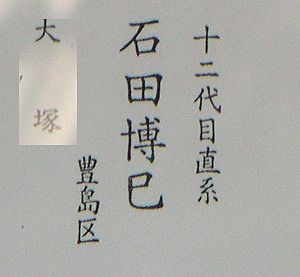 十二代目直系
石田博巳
豊島区
大塚